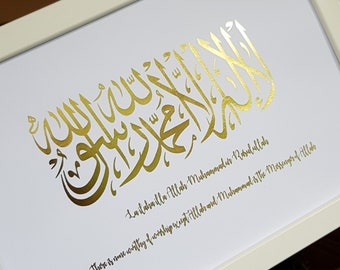 لا إله إلا الله محمد رسول الله
La ilaha illa Allah, Muhammad ur-Rasul allah
There is none worthy of worship except Allah and Muhammad is the Messenger of Allah